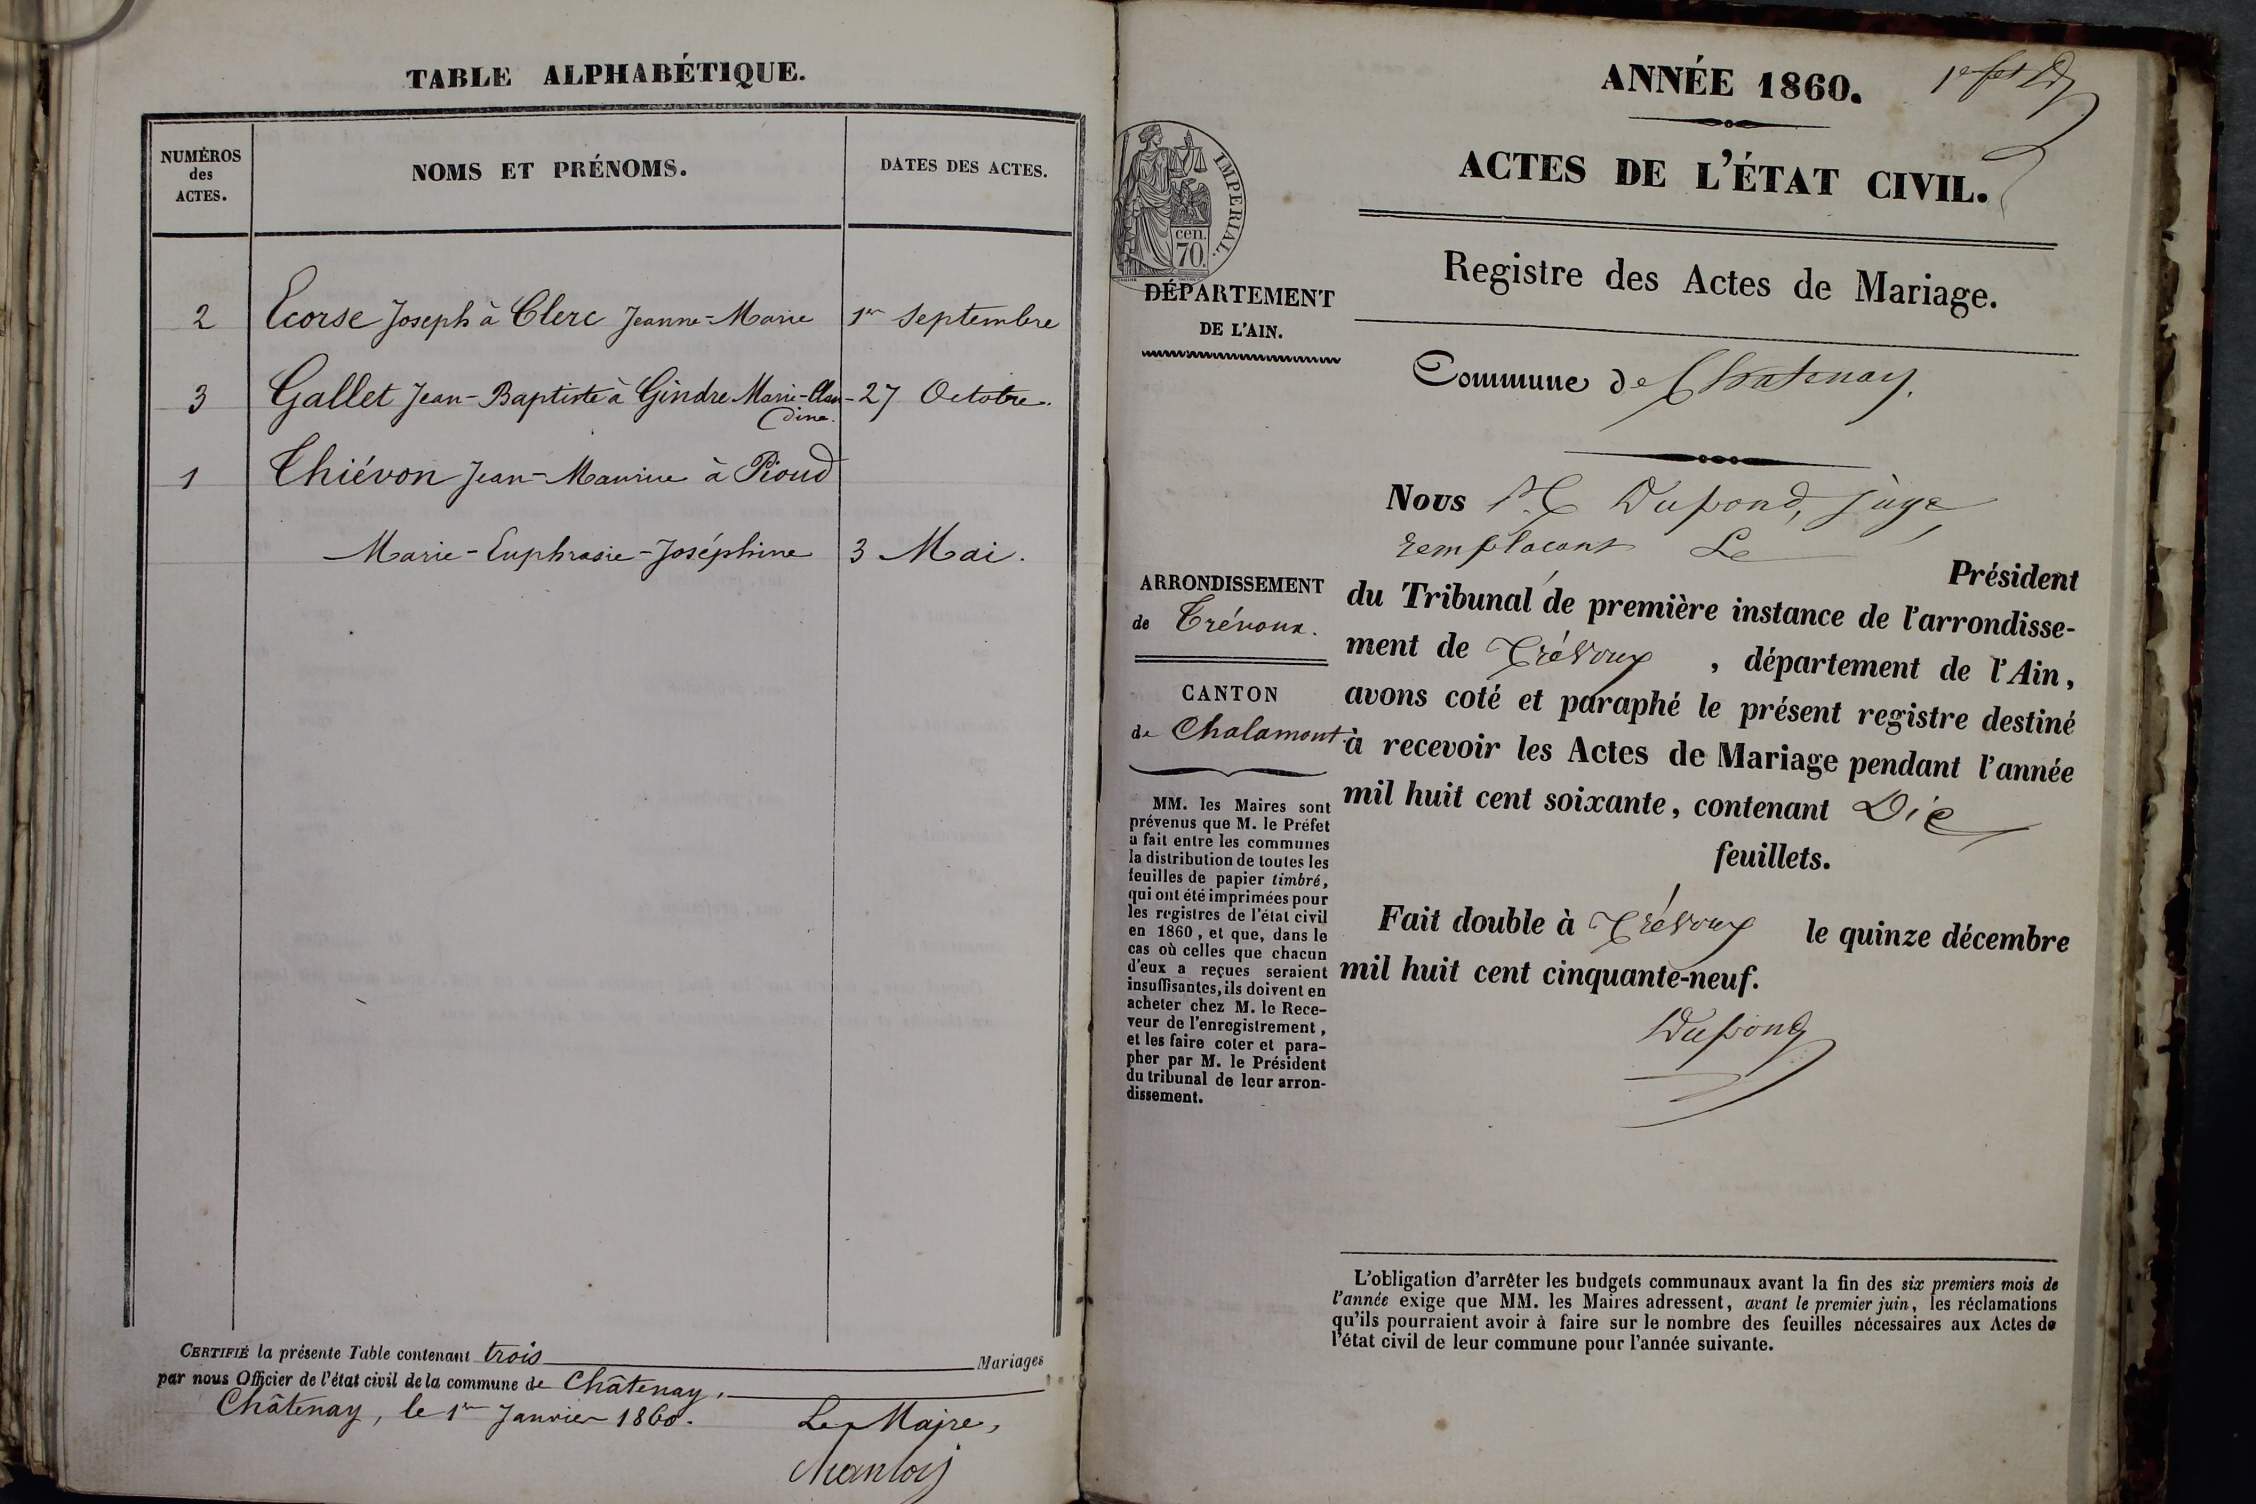 TABLE ALPHABÉTIQUE.
NUMÉROS
des
ACTES.
NOMS ET PRÉNOMS.
DATES DES ACTES.
2 Ecorse Joseph à Clerc Jeanne-Marie 1er Septembre
3 Gallet Jean-Baptiste à Gindre Marie-Clau- 27 Octobre.
dine.
1 Thiévon Jean-Maurice à Pioud
Marie-Euphrasie-Joséphine 3 Mai.
CERTIFIÉ la présente Table contenant trois Mariages
par nous Officier de l'état civil de la commune de Châtenay,
Châtenay, le 1er Janvier 1860.
Le Maire,
ANNÉE 1860.
ACTES DE L'ÉTAT CIVIL.
Registre des Actes de Mariage.
IMPERIAL.
cen.
70.
DÉPARTEMENT
DE L'AIN.
Commune de Chatenay.
ARRONDISSEMENT
de Trévoux.
CANTON
de Chalamont.
MM. les Maires sont
prévenus que M. le Préfet
a fait entre les communes
la distribution de toutes les
feuilles de papier timbré,
qui ont été imprimées pour
les registres de l'état civil
en 1860, et que, dans le
cas où celles que chacun
d'eux a reçues seraient
insuffisantes, ils doivent en
acheter chez M. le Rece-
veur de l'enregistrement,
et les faire coter et para-
pher par M. le Président
du tribunal de leur arron-
dissement.
Nous Dupond, juge
remplacant Le
Président
du Tribunal de première instance de l'arrondisse-
ment de Trévoux, département de l'Ain,
avons coté et paraphé le présent registre destiné
à recevoir les Actes de Mariage pendant l'année
mil huit cent soixante, contenant Dix
feuillets.
Fait double à Trévoux le quinze décembre
mil huit cent cinquante-neuf.
Dupond
L'obligation d'arrêter les budgets communaux avant la fin des six premiers mois de
l'année exige que MM. les Maires adressent, avant le premier juin, les réclamations
qu'ils pourraient avoir à faire sur le nombre des feuilles nécessaires aux Actes de
l'état civil de leur commune pour l'année suivante.